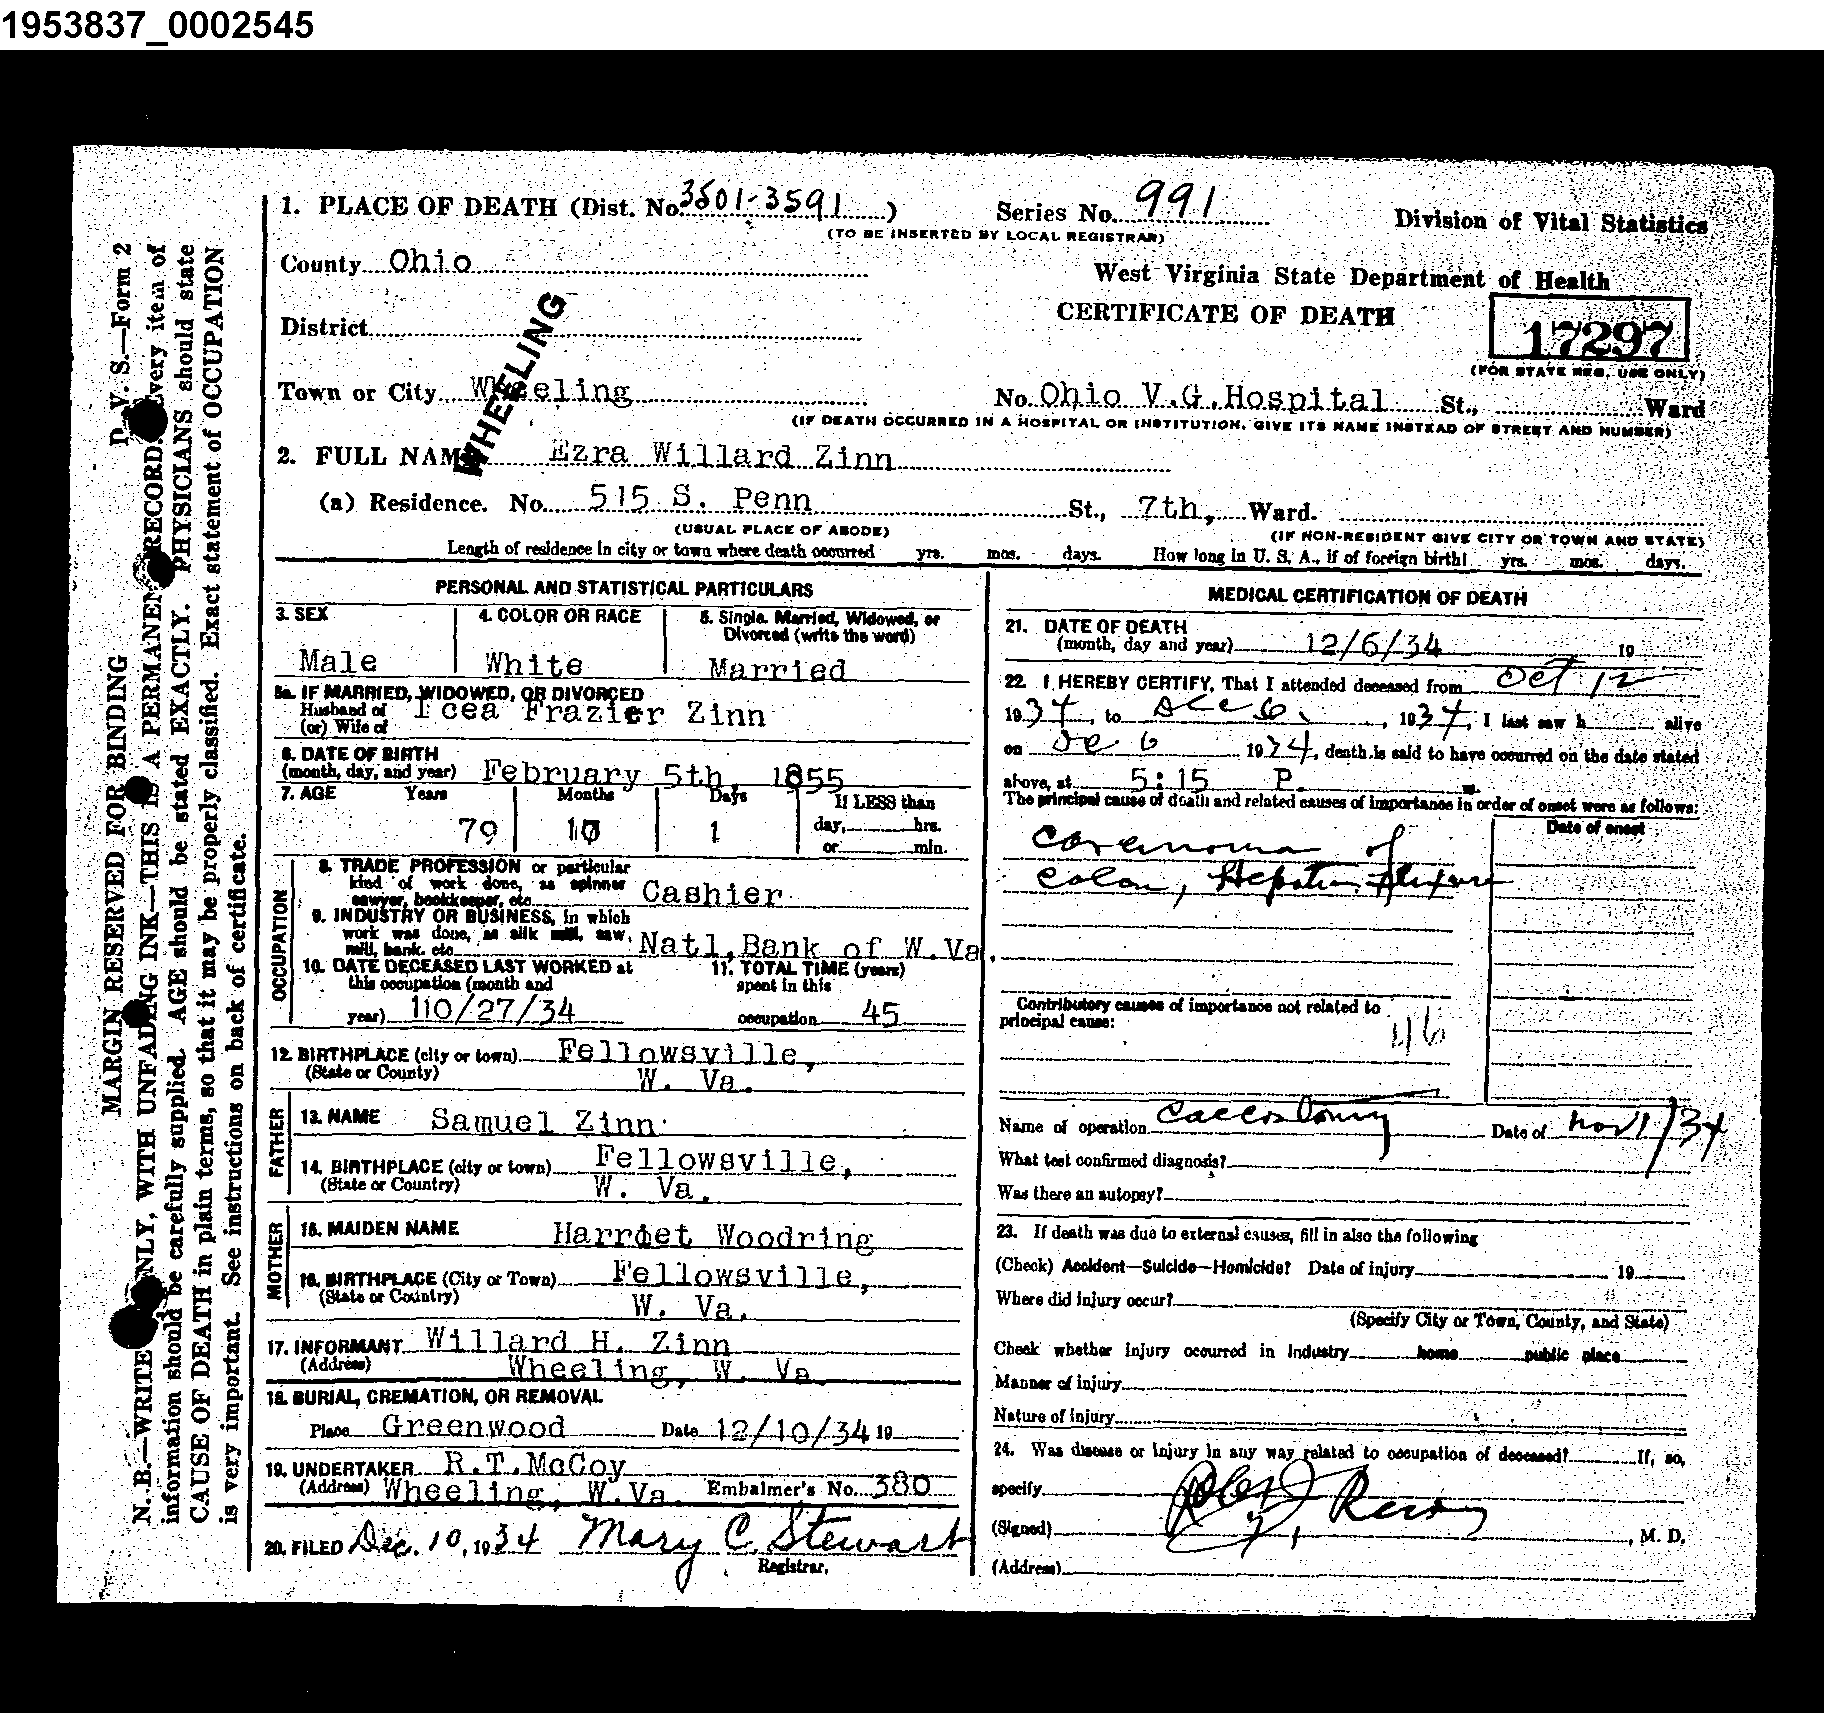 1953837_0002545
1. PLACE OF DEATH (Dist. No. 3501-3591 )
Series No. 991
(TO BE INSERTED BY LOCAL REGISTRAR)
Division of Vital Statistics
County Ohio
West Virginia State Department of Health
CERTIFICATE OF DEATH
District
WHEELING
17297
(FOR STATE REG. USE ONLY)
Town or City Wheeling
No. Ohio V.G. Hospital St., Ward
(IF DEATH OCCURRED IN A HOSPITAL OR INSTITUTION, GIVE ITS NAME INSTEAD OF STREET AND NUMBER)
2. FULL NAME Ezra Willard Zinn
(a) Residence. No. 515 S. Penn St., 7th, Ward.
(USUAL PLACE OF ABODE)
(IF NON-RESIDENT GIVE CITY OR TOWN AND STATE)
Length of residence in city or town where death occurred yrs. mos. days. How long in U. S. A., if of foreign birth! yrs. mos. days.
PERSONAL AND STATISTICAL PARTICULARS
3. SEX
4. COLOR OR RACE
5. Single. Married, Widowed, or
Divorced (write the word)
Male
White
Married
5a. IF MARRIED, WIDOWED, OR DIVORCED
Husband of
(or) Wife of
Icea Frazier Zinn
6. DATE OF BIRTH
(month, day, and year) February 5th, 1855
7. AGE Years Months Days If LESS than
79 10 1 day, hrs.
or min.
OCCUPATION
8. TRADE PROFESSION or particular
kind of work done, as spinner
sawyer, bookkeeper, etc. Cashier
9. INDUSTRY OR BUSINESS, in which
work was done, as silk mill, saw,
mill, bank. etc. Natl. Bank of W.Va.
10. DATE DECEASED LAST WORKED at
this occupation (month and
year) 110/27/34
11. TOTAL TIME (years)
spent in this
occupation 45
12. BIRTHPLACE (city or town) Fellowsville,
(State or County) W. Va.
FATHER
13. NAME Samuel Zinn
14. BIRTHPLACE (city or town) Fellowsville,
(State or Country) W. Va.
MOTHER
15. MAIDEN NAME Harriet Woodring
16. BIRTHPLACE (City or Town) Fellowsville,
(State or Country) W. Va.
17. INFORMANT Willard H. Zinn
(Address) Wheeling, W. Va.
18. BURIAL, CREMATION, OR REMOVAL
Place Greenwood Date 12/10/34 19
19. UNDERTAKER R.T.McCoy
(Address) Wheeling, W.Va. Embalmer's No. 380
20. FILED Dec. 10, 1934 Mary C. Stewart
Registrar.
MEDICAL CERTIFICATION OF DEATH
21. DATE OF DEATH
(month, day and year) 12/6/34 19
22. I HEREBY CERTIFY, That I attended deceased from Oct 12
1934, to Dec 6, 1934, I last saw h alive
on De 6 1934, death is said to have occurred on the date stated
above, at 5:15 P. m.
The principal cause of death and related causes of importance in order of onset were as follows:
Date of onset
Carcinoma of
Colon, Hepatic flexure
Contributory causes of importance not related to
principal cause:
46
Name of operation Date of Nov 1/34
What test confirmed diagnosis?
Was there an autopsy?
23. If death was due to external causes, fill in also the following
(Check) Accident—Suicide—Homicide? Date of injury 19
Where did injury occur?
(Specify City or Town, County, and State)
Check whether injury occurred in Industry home public place
Manner of injury
Nature of injury
24. Was disease or injury in any way related to occupation of deceased? If, so,
specify
(Signed) , M. D.
(Address)
D. V. S.—Form 2
MARGIN RESERVED FOR BINDING
N. B.—WRITE ONLY, WITH UNFADING INK—THIS IS A PERMANENT RECORD. Every item of
information should be carefully supplied. AGE should be stated EXACTLY. PHYSICIANS should state
CAUSE OF DEATH in plain terms, so that it may be properly classified. Exact statement of OCCUPATION
is very important. See instructions on back of certificate.